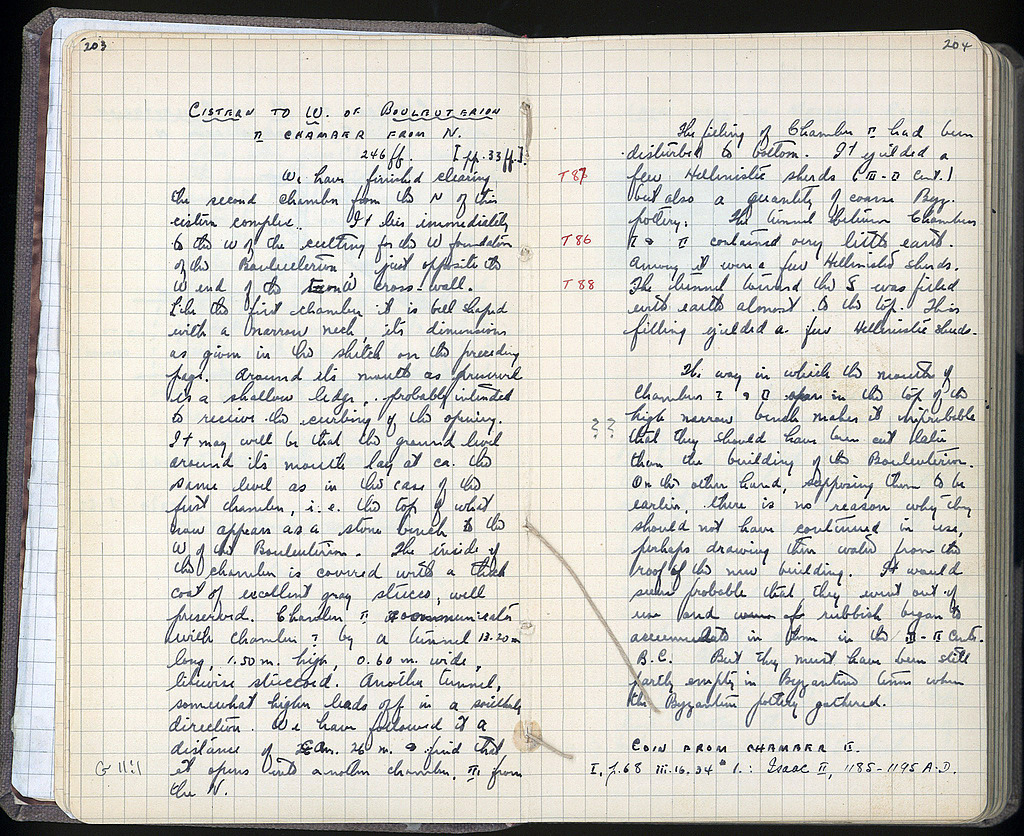 203
CISTERN TO W. OF BOULEUTERION
II CHAMBER FROM N.
246 ff. [pp. 33 ff.].
We have finished clearing
the second chamber from the N of this
cistern complex. It lies immediately
to the W of the cutting for the W foundation
of the Bouleuterion, just opposite the
W end of the cross-wall.
Like the first chamber it is bell shaped
with a narrow neck, its dimensions
as given in the sketch on the preceding
page. Around its mouth as preserved
is a shallow ledge, probably intended
to receive the curbing of the opening.
It may well be that the ground level
around its mouth lay at ca. the
same level as in the case of the
first chamber, i.e. the top of what
now appears as a stone bench to the
W of the Bouleuterion. The inside of
the chamber is covered with a thick
coat of excellent gray stucco, well
preserved. Chamber II communicates
with chamber I by a tunnel 13.20 m
long, 1.50 m. high, 0.60 m. wide,
likewise stuccoed. Another tunnel,
somewhat higher leads off in a southerly
direction. We have followed it a
distance of 26 m. & find that
G 11:1 it opens into another chamber, III from
the N.
204
The filling of Chamber II had been
disturbed to bottom. It yielded a
T 87 few Hellenistic sherds (III-II Cent.)
but also a quantity of coarse Byz.
pottery. The tunnel between Chambers
T 86 I & II contained very little earth.
Among it were a few Hellenistic sherds.
T 88 The tunnel toward the S was filled
with earth almost to the top. This
filling yielded a few Hellenistic sherds.
The way in which the mouths of
Chambers I & II open in the top of the
?? high narrow bench makes it improbable
that they should have been cut later
than the building of the Bouleuterion.
On the other hand, supposing them to be
earlier, there is no reason why they
should not have continued in use,
perhaps drawing their water from the
roof of the new building. It would
seem probable that they went out of
use and rubbish began to
accumulate in them in the III-II Cents.
B.C. But they must have been still
partly empty in Byzantine times when
the Byzantine pottery gathered.
COIN FROM CHAMBER II.
I, p. 68 III.16.34 # 1.: Isaac II, 1185-1195 A.D.